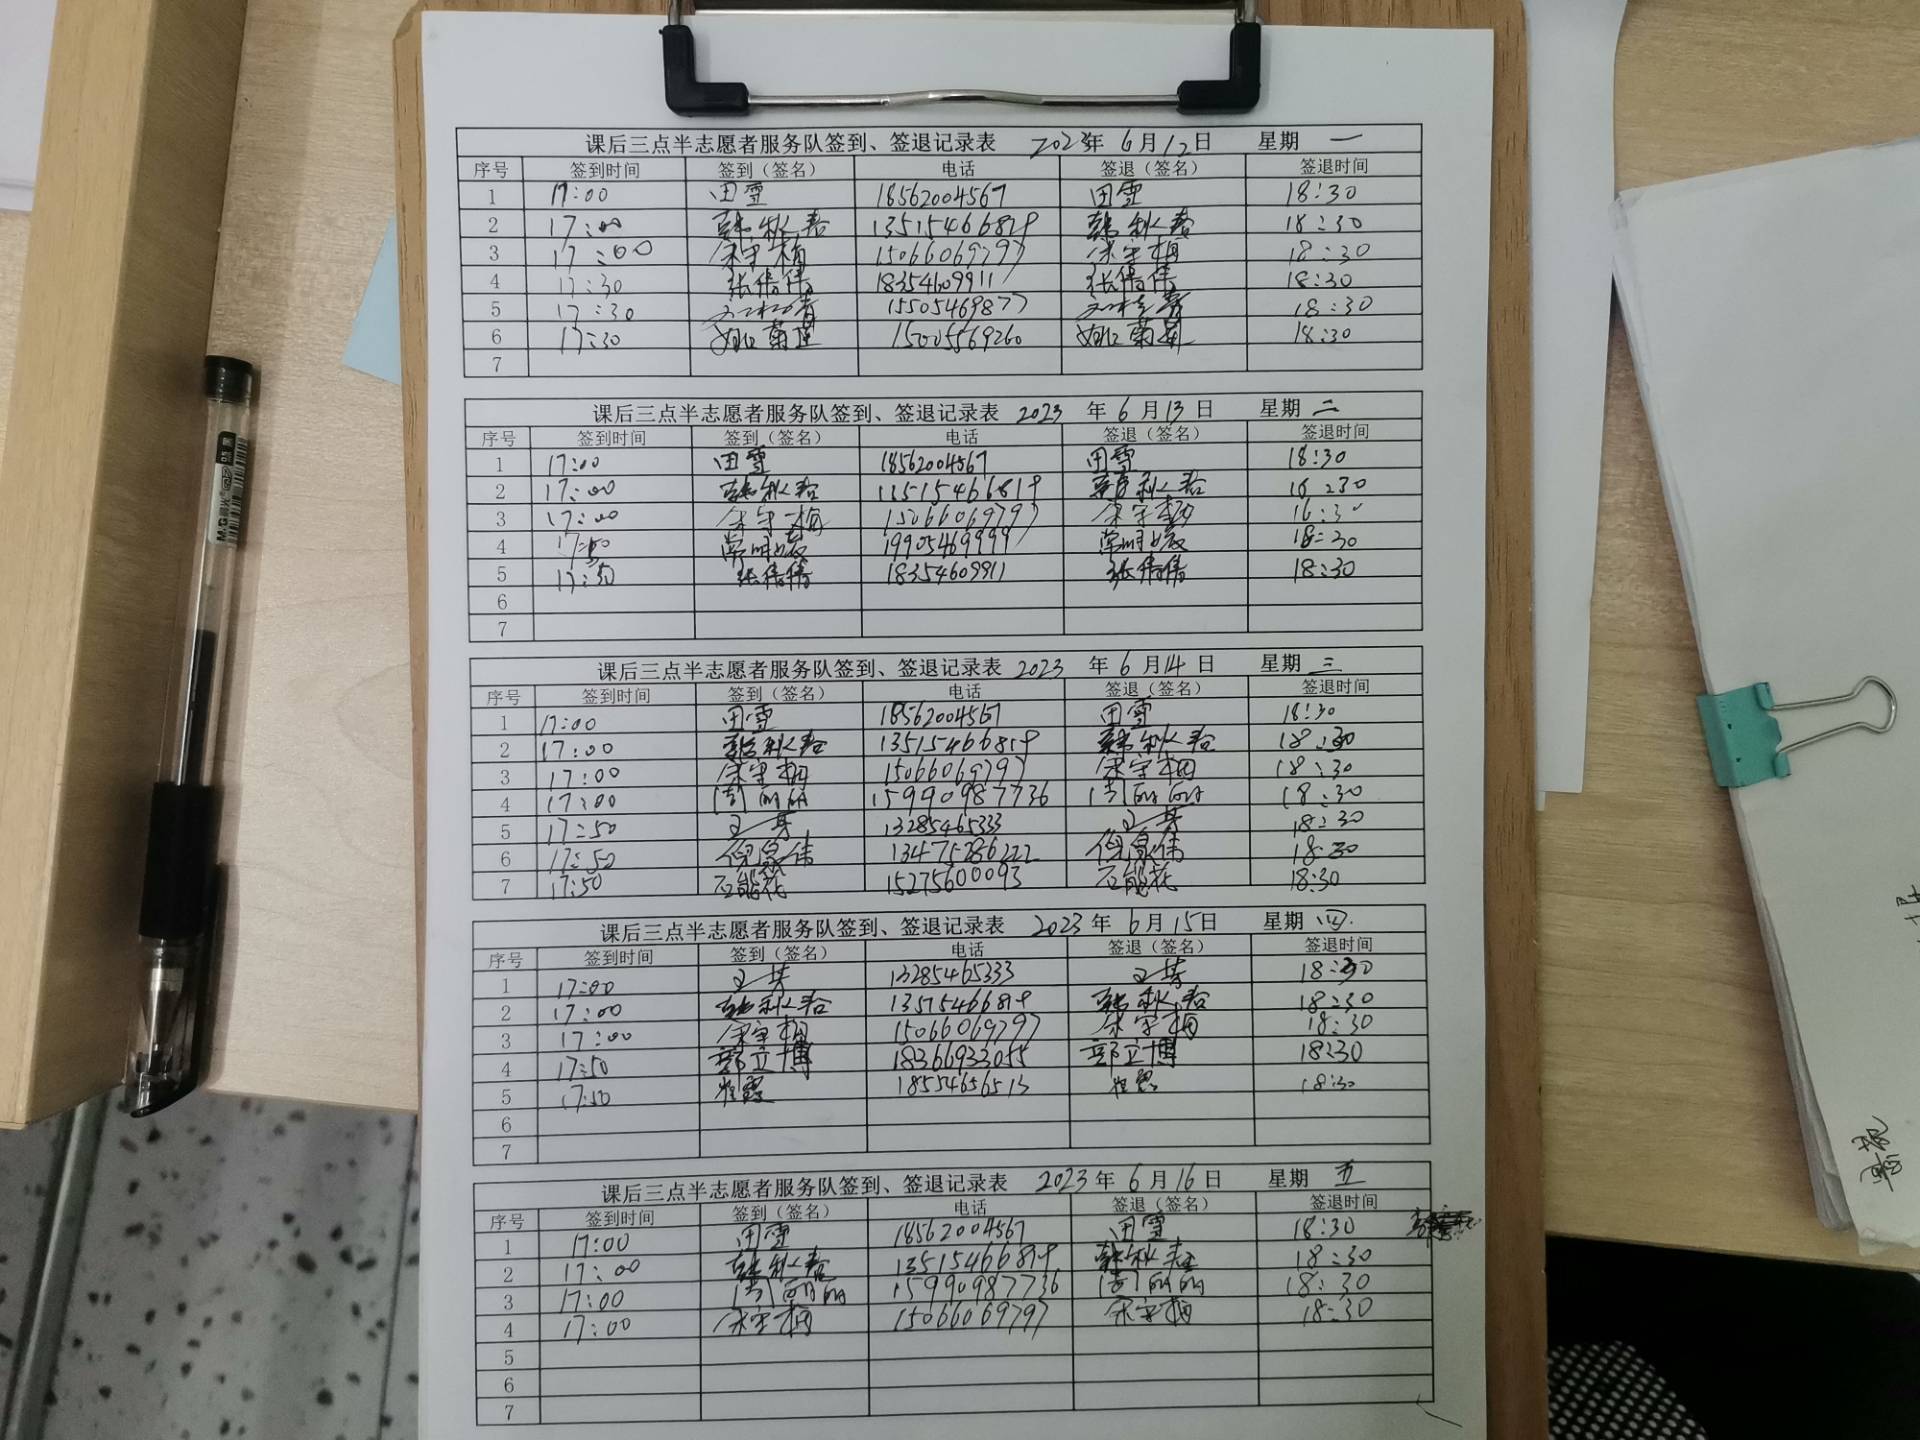 课后三点半志愿者服务队签到、签退记录表 2023年 6月12日 星期 一
序号 签到时间 签到（签名） 电话 签退（签名） 签退时间
1 17:00 田雪 18562004567 田雪 18:30
2 17:00 韩秋春 13515466819 韩秋春 18:30
3 17:00 宋守梅 15066069797 宋守梅 18:30
4 17:30 张倩倩 18354609911 张倩倩 18:30
5 17:30 15505469877 18:30
6 17:30 姚菊莲 15005569260 姚菊莲 18:30
7
课后三点半志愿者服务队签到、签退记录表 2023 年 6月13日 星期 二
序号 签到时间 签到（签名） 电话 签退（签名） 签退时间
1 17:00 田雪 18562004567 田雪 18:30
2 17:00 韩秋春 13515466819 韩秋春 18:30
3 17:00 宋守梅 15066069797 宋守梅 18:30
4 17:50 常明霞 19905469999 常明霞 18:30
5 17:50 张倩倩 18354609911 张倩倩 18:30
6
7
课后三点半志愿者服务队签到、签退记录表 2023 年 6月14日 星期 三
序号 签到时间 签到（签名） 电话 签退（签名） 签退时间
1 17:00 田雪 18562004567 田雪 18:30
2 17:00 韩秋春 13515466819 韩秋春 18:30
3 17:00 宋守梅 15066069797 宋守梅 18:30
4 17:00 周丽丽 15990987736 周丽丽 18:30
5 17:50 王芳 13285465333 王芳 18:30
6 17:50 倪泉伟 13475286222 倪泉伟 18:30
7 17:50 石能花 15275600093 石能花 18:30
课后三点半志愿者服务队签到、签退记录表 2023年 6月15日 星期 四
序号 签到时间 签到（签名） 电话 签退（签名） 签退时间
1 17:00 王芳 13285465333 王芳 18:30
2 17:00 韩秋春 13515466819 韩秋春 18:30
3 17:00 宋守梅 15066069797 宋守梅 18:30
4 17:50 郭立博 18366933055 郭立博 18:30
5 17:50 崔霞 18554656513 崔霞 18:30
6
7
课后三点半志愿者服务队签到、签退记录表 2023年 6月16日 星期 五
序号 签到时间 签到（签名） 电话 签退（签名） 签退时间
1 17:00 田雪 18562004567 田雪 18:30
2 17:00 韩秋春 13515466819 韩秋春 18:30
3 17:00 周丽丽 15990987736 周丽丽 18:30
4 17:00 宋守梅 15066069797 宋守梅 18:30
5
6
7